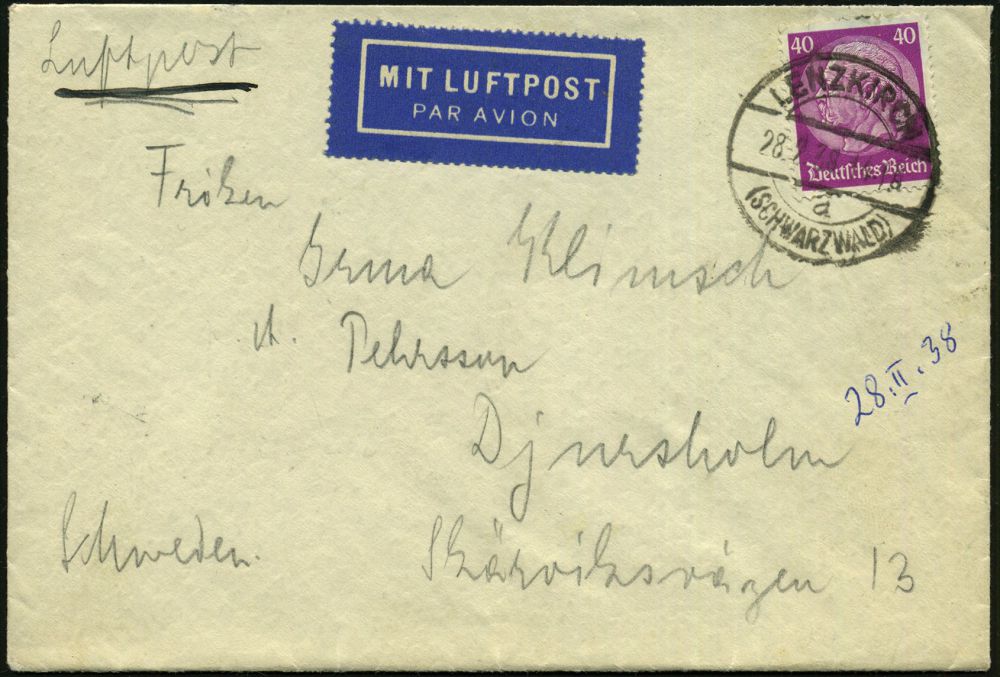 Luftpost
MIT LUFTPOST
PAR AVION
40 40
Deutsches Reich
LENZKIRCH
28.
a
(SCHWARZWALD)
Fröken
Irma Klimsch
Pehrsson
28.II.38
Djursholm
Schweden.
Skärviksvägen 13